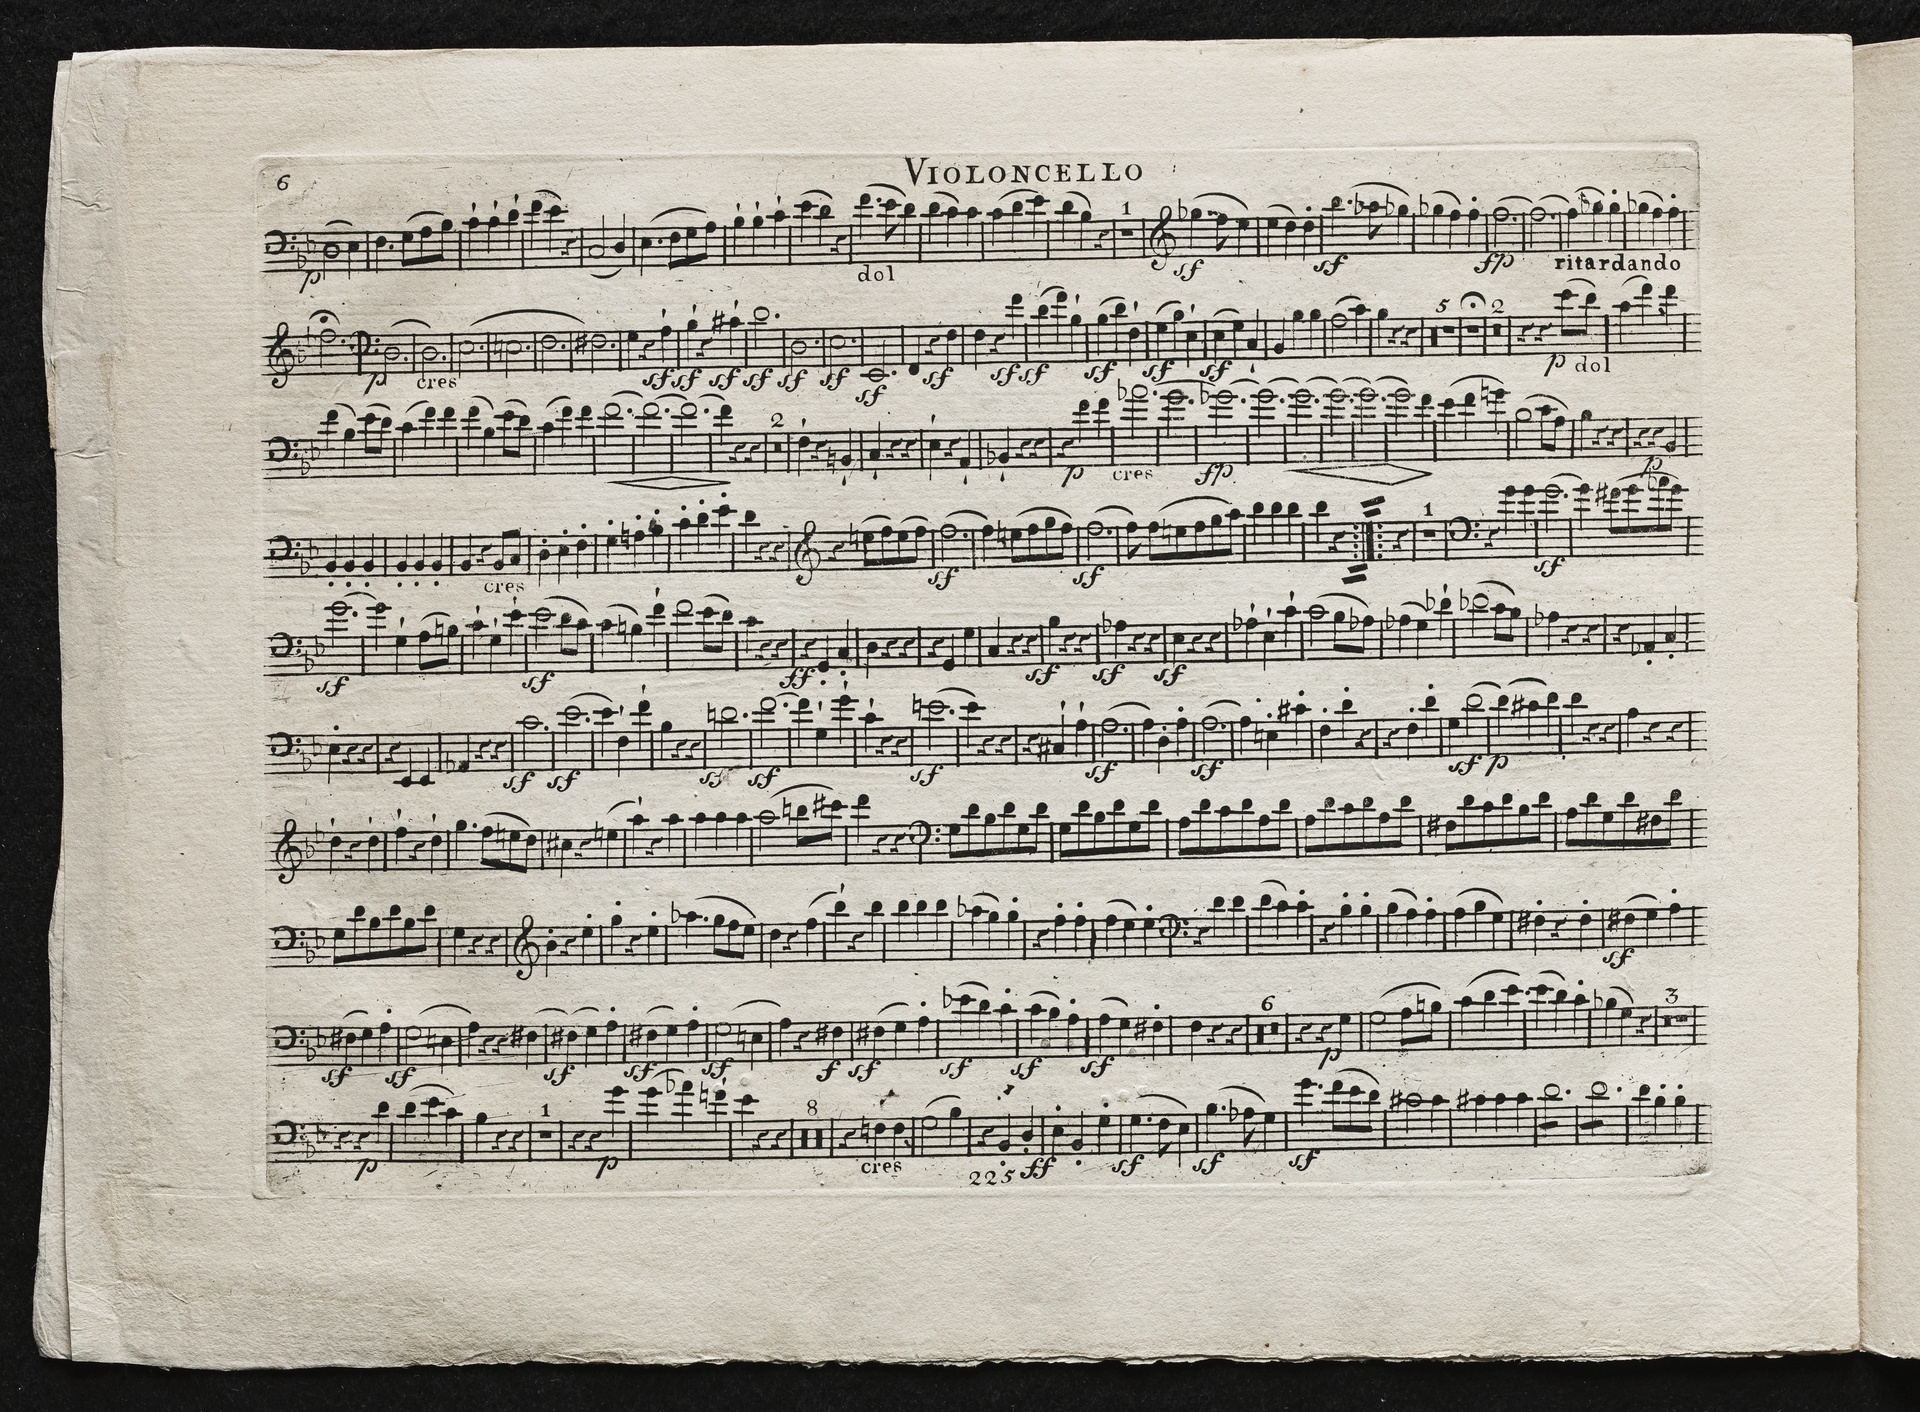 6
VIOLONCELLO
1
p dol sf sf fp ritardando
5 2
p cres sf sf sf sf sf sf sf sf sf sf sf sf sf p dol
2
p cres fp p
1
cres sf sf sf
sf sf ff sf sf sf
sf sf sf sf sf sf sf sf p
sf
6 3
sf sf sf sf sf f sf sf sf sf p
1 8
p p cres ff sf sf sf
225